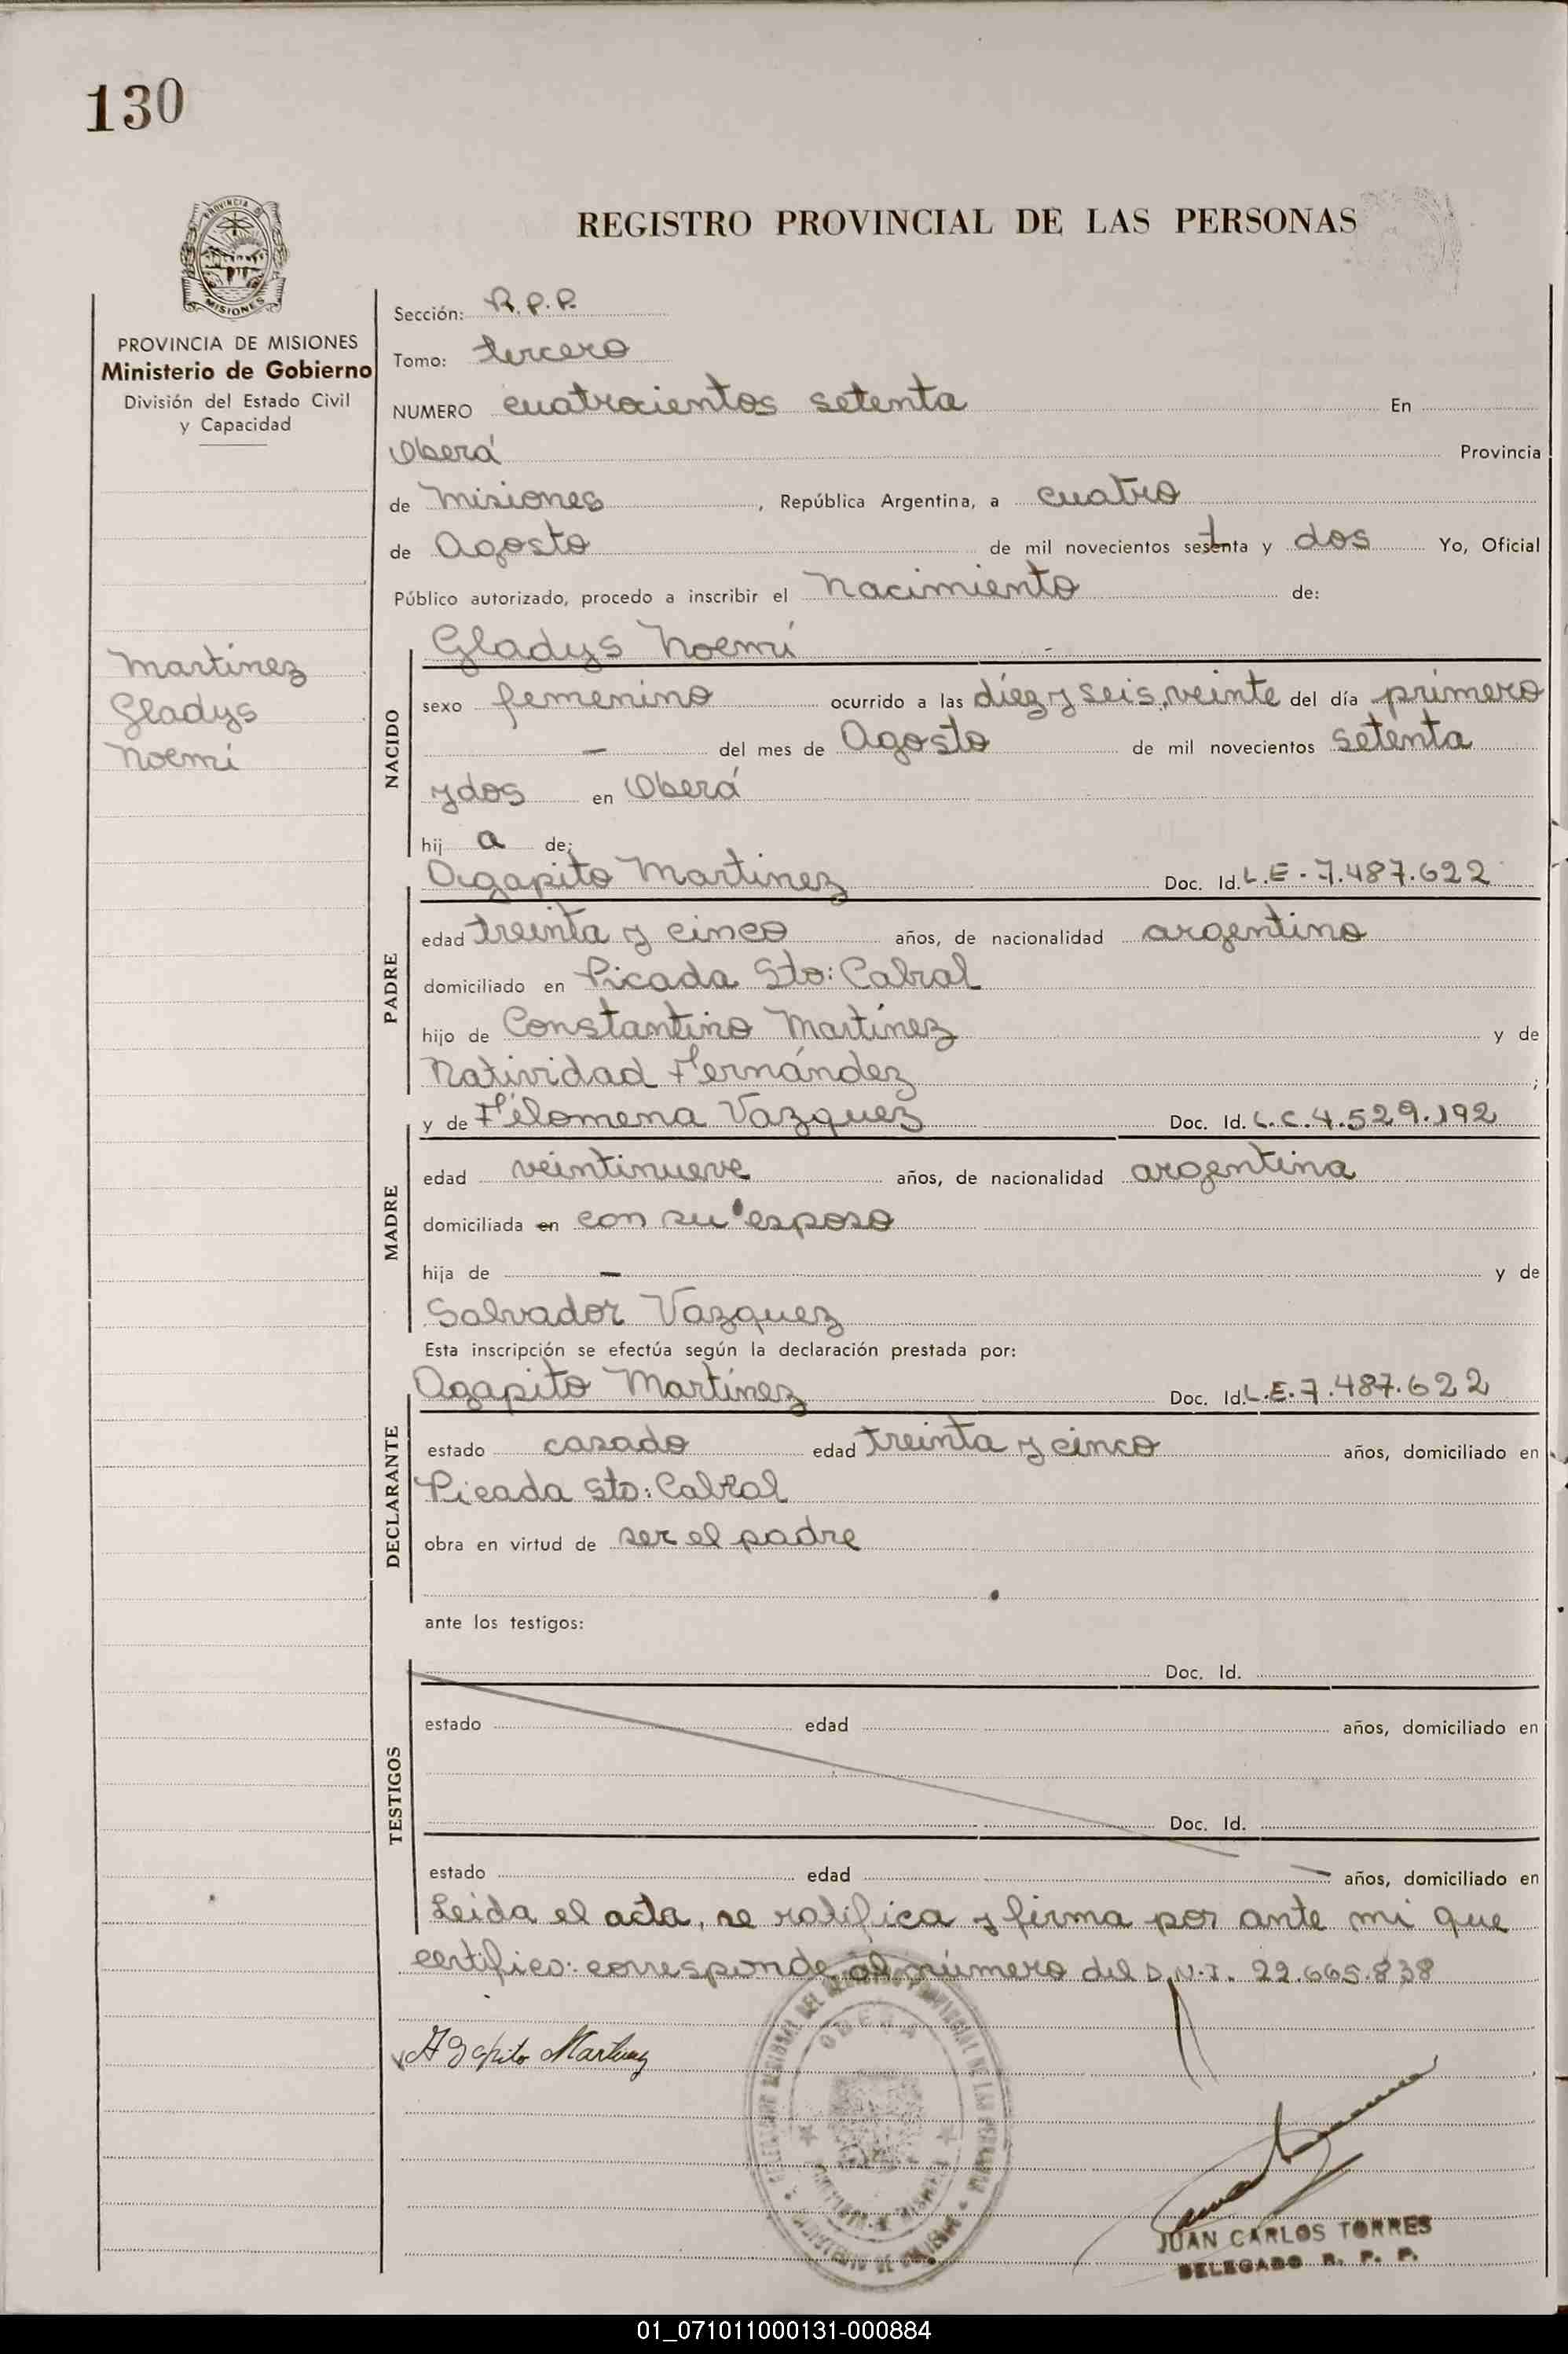 130
REGISTRO PROVINCIAL DE LAS PERSONAS
PROVINCIA DE MISIONES
Ministerio de Gobierno
División del Estado Civil
y Capacidad
Martínez
Gladys
Noemí
Sección: R.P.P.
Tomo: tercero
NUMERO cuatrocientos setenta En
Oberá Provincia
de Misiones, República Argentina, a cuatro
de Agosto de mil novecientos setenta y dos Yo, Oficial
Público autorizado, procedo a inscribir el nacimiento de:
Gladys Noemí
NACIDO
sexo femenino ocurrido a las diez y seis, veinte del día primero
— del mes de Agosto de mil novecientos setenta
y dos en Oberá
hij a de;
Agapito Martinez Doc. Id. L.E - 7.487.622
PADRE
edad treinta y cinco años, de nacionalidad argentino
domiciliado en Picada Sto: Cabral
hijo de Constantino Martínez y de
Natividad Fernández;
y de Filomena Vazquez Doc. Id. L.C. 4.529.192
MADRE
edad veintinueve años, de nacionalidad argentina
domiciliada en con su esposo
hija de — y de
Salvador Vazquez
Esta inscripción se efectúa según la declaración prestada por:
Agapito Martínez Doc. Id. L.E. 7.487.622
DECLARANTE
estado casado edad treinta y cinco años, domiciliado en
Picada Sto: Cabral
obra en virtud de ser el padre
ante los testigos:
TESTIGOS
Doc. Id.
estado edad años, domiciliado en
Doc. Id.
estado edad — años, domiciliado en
Leída el acta, se ratifica y firma por ante mi que
certifico: corresponde al número del D.N.I. 22.665.838
Agapito Martinez
OBERA
JUAN CARLOS TORRES
DELEGADO R. P. P.
01_071011000131-000884